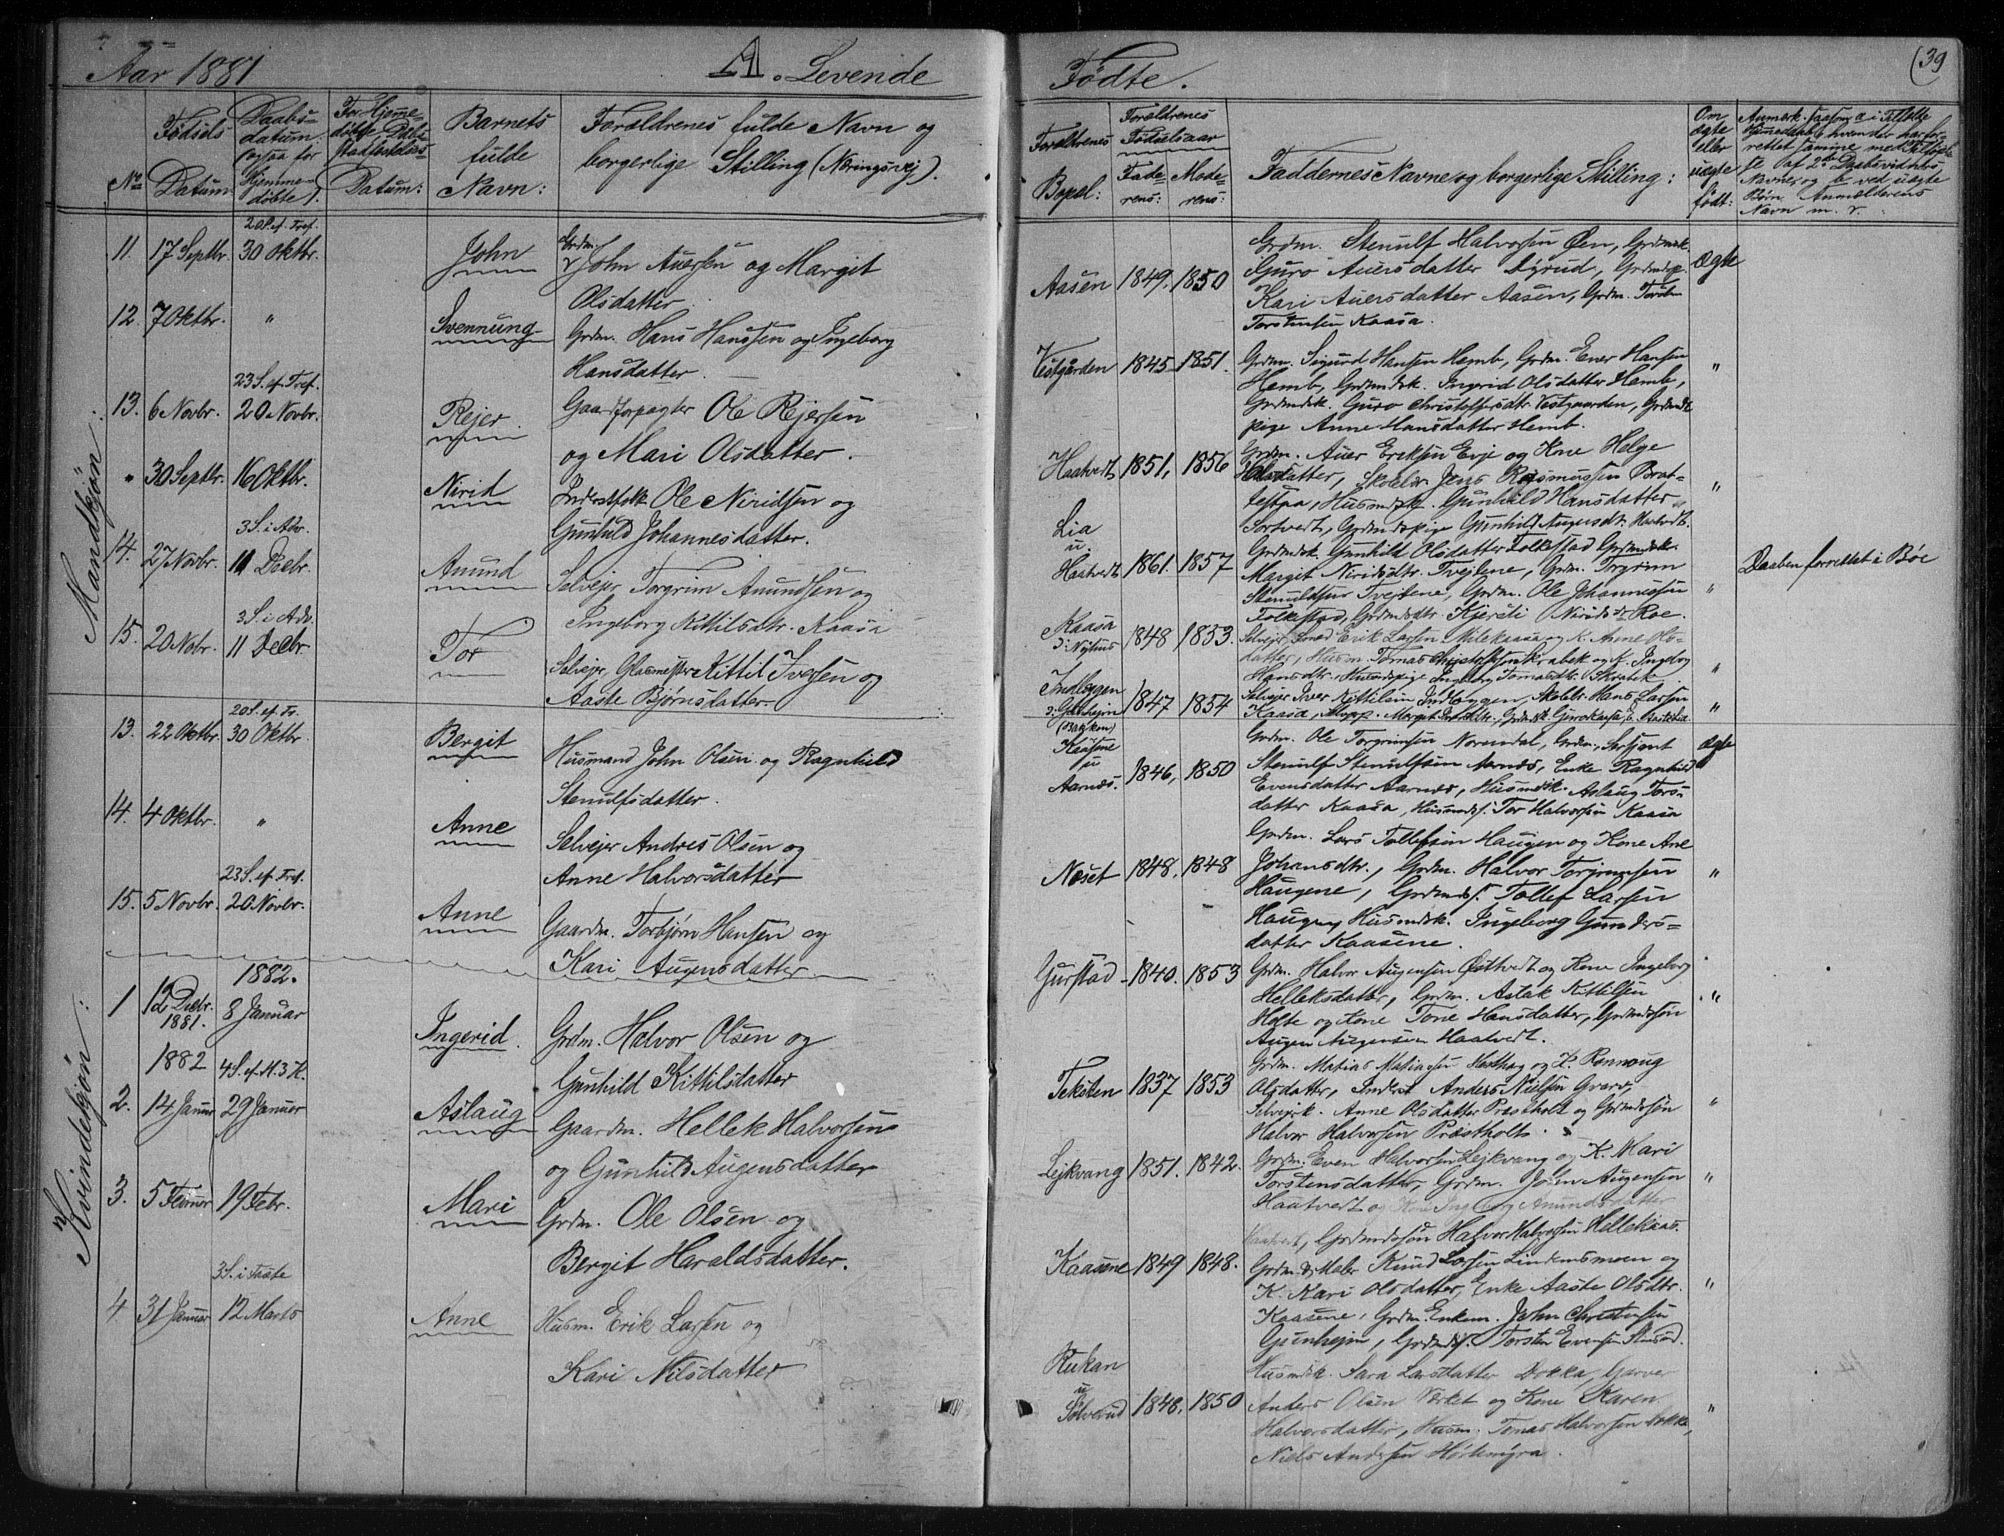 Aar 1881
A. Levende
Fødte.
(39
No
Fødsels Datum
Daabs-
datum
(ogsaa for
Hjemme-
døbte).
For Hjemme
døbte, Daabs
stadfæstelses
Datum:
Barnets
fulde
Navn:
Forældrenes fulde Navn og
borgerlige Stilling (Næringsvej).
Forældrenes
Bopæl:
Forældrenes
Fødselsaar
Fade-
rens:
Mode-
rens:
Faddernes Navne og borgerlige Stilling:
Om
ægte
eller
uægte
født:
Navn m. v.
Mandkjøn:
20 S. ef. Tref.
11. 17 Septbr. 30 Oktbr. John
Grdm.
John Auersen og Margit
Olsdatter
Aasen 1849. 1850
Grdm. Stenulf Halvorsen Øen, Grdmsk.
Guro Auersdatter Dyrud, Grdmdsp.
Kari Auersdatter Aasen, Grdm. Torsten
Torstensen Kaasa.
Ægte
12. 7 Oktbr. " Svennung
Grdm. Hans Hansen og Ingeborg
Hansdatter.
Vestgården 1845 1851.
Grdm. Sigurd Hansen Hemb, Grdm. Even Hansen
Hemb, Grdmdsk. Ingerid Olsdatter Hemb,
Grdmdsk. Guro Christoffersdtr. Vestgaarden, Grdmds
pige Anne Hansdatter Hemb.
"
23 S. ef. Tref.
13. 6 Novbr. 20 Novbr. Rejer
Gaardforpagter Ole Rejersen
og Mari Olsdatter.
Haatvedt 1851, 1856
Grdm. Auer Eriksen Evje og Kone Helge
Olsdatter, Skolelr. Jens Rasmussen Brat-
testaa, Husmdsk. Gunhild Hansdatter
Sortvedt, Grdmdspige Gunhild Augensdtr. Haatvedt.
"
" 30 Septbr. 16 Oktbr. Nirid
Inderstfolk Ole Niridsen og
Gunhild Johannesdatter.
Lia
u.
Haatvedt 1861. 1857
Grdmdsk. Gunhild Olsdatter Folkestad Grdmdsk.
Margit Niridsdtr. Tvejtene, Grdm. Torgrim
Stenulfsen Tvejtene, Grdm. Ole Johannessen
Folkestad, Grdmdsdtr. Kjersti Niridsdtr. Roe.
"
Daaben forrettet i Bøe
3 S. i Adv.
14. 27 Novbr. 11 Decbr. Amund
Selvejer Torgrim Amundsen og
Ingeborg Kittilsdtr. Kaasa
Kaasa
1848 1853.
Hansdtr. Husmdspige Ingeborg Tomasdtr.
"
3 S. i Adv.
15. 20 Nobr. 11 Decbr. Tor
Selvejer, Glasmester Kittil Iversen og
Aaste Bjørnsdatter.
Indleggen
1847 1854
Selvejer Iver Kittilsen Indleggen, Skolelr. Hans Larsen
"
Kvindekjøn:
20 S. ef. Tr.
13. 22 Oktbr. 30 Oktbr. Bergit
Husmand John Olsen og Ragnhild
Stenulfsdatter.
Kaasene
u
Aarnæs. 1846, 1850
Grdm. Ole Torgrimsen Norendal, Grdm., Serjeant
Stenulf Stenulfsen Aarnæs, Enke Ragnhild
Evensdatter Aarnæs, Husmdsk. Aslaug Tors-
datter Kaasa, Husmdss. Tor Halvorsen Kaasa
ægte
14. 4 Oktbr. " Anne
Selvejer Andres Olsen og
Anne Halvorsdatter
Næset 1848. 1848
Grdm. Lars Tollefsen Haugen og Kone Ane
Johansdtr., Grdm. Halvor Torgrimsen
Haugene, Grdmdss. Tollef Larsen
Haugen, Husmdsk. Ingeborg Gunders-
datter Kaasene.
"
23 S. ef. Tref.
15. 5 Novbr. 20 Novbr. Anne
Gaardm. Torbjørn Hansen og
Kari Augensdatter
Gurstad 1840. 1853
Grdm. Halvor Augensen Østtvedt og Kone Ingeborg
Helleksdatter, Grdm. Aslak Kittilsen
Holte og Kone Tone Hansdatter, Grdmdssøn
Augen Mogensen Haatvedt.
"
1882.
1 12 Decbr. 1881. 8 Januar Ingerid.
Grdm. Halvor Olsen og
Gunhild Kittilsdatter
Teksten 1837 1853
Grdm. Matias Matiasen og K. Rannoug
Olsdatter, Inderst Anders Nielsen Grave,
Selvejrk. Anne Olsdatter Præstholt og Grdmdssøn
Halvor Halvorsen Præstholt.
"
1882 4 S. ef. H. 3 K.
2. 14 Januar 29 Januar Aslaug
Gaardm. Hellek Halvorsen
og Gunhild Augensdatter
Lejkvang 1851. 1842.
Grdm. Even Halvorsen Lejkvang og K. Mari
Torstensdatter, Grdm. John Augensen
Haatvedt og Kone Ingeborg Amundsdatter
Haatvedt, Grdmdssøn Halvor Halvorsen Hellekaas.
"
3. 5 Februar 19 Febr. Mari
Grdm. Ole Olsen og
Bergit Haraldsdatter.
Kaasene 1849 1848.
Grdm. & Maler Knud Larsen Lindemsmoen og
K. Kari Olsdatter, Enke Aaste Olsdtr.
Kaasene, Grdm. Enkem. John Christensen
Gunhejm, Grdmdss. Torsten Evensen
"
3 S. i Faste
4 31 Januar 12 Marts Anne
Husm. Erik Larsen og
Kari Nilsdatter
Rukan
u
Sølverud 1848. 1850
Husmdk. Sara Larsdatter Dokka, Garver
Anders Olsen Verket og Kone Karen
Halvorsdatter, Husm. Tomas Halvorsen Dokka,
Niels Andersen Hørtemyra.
"